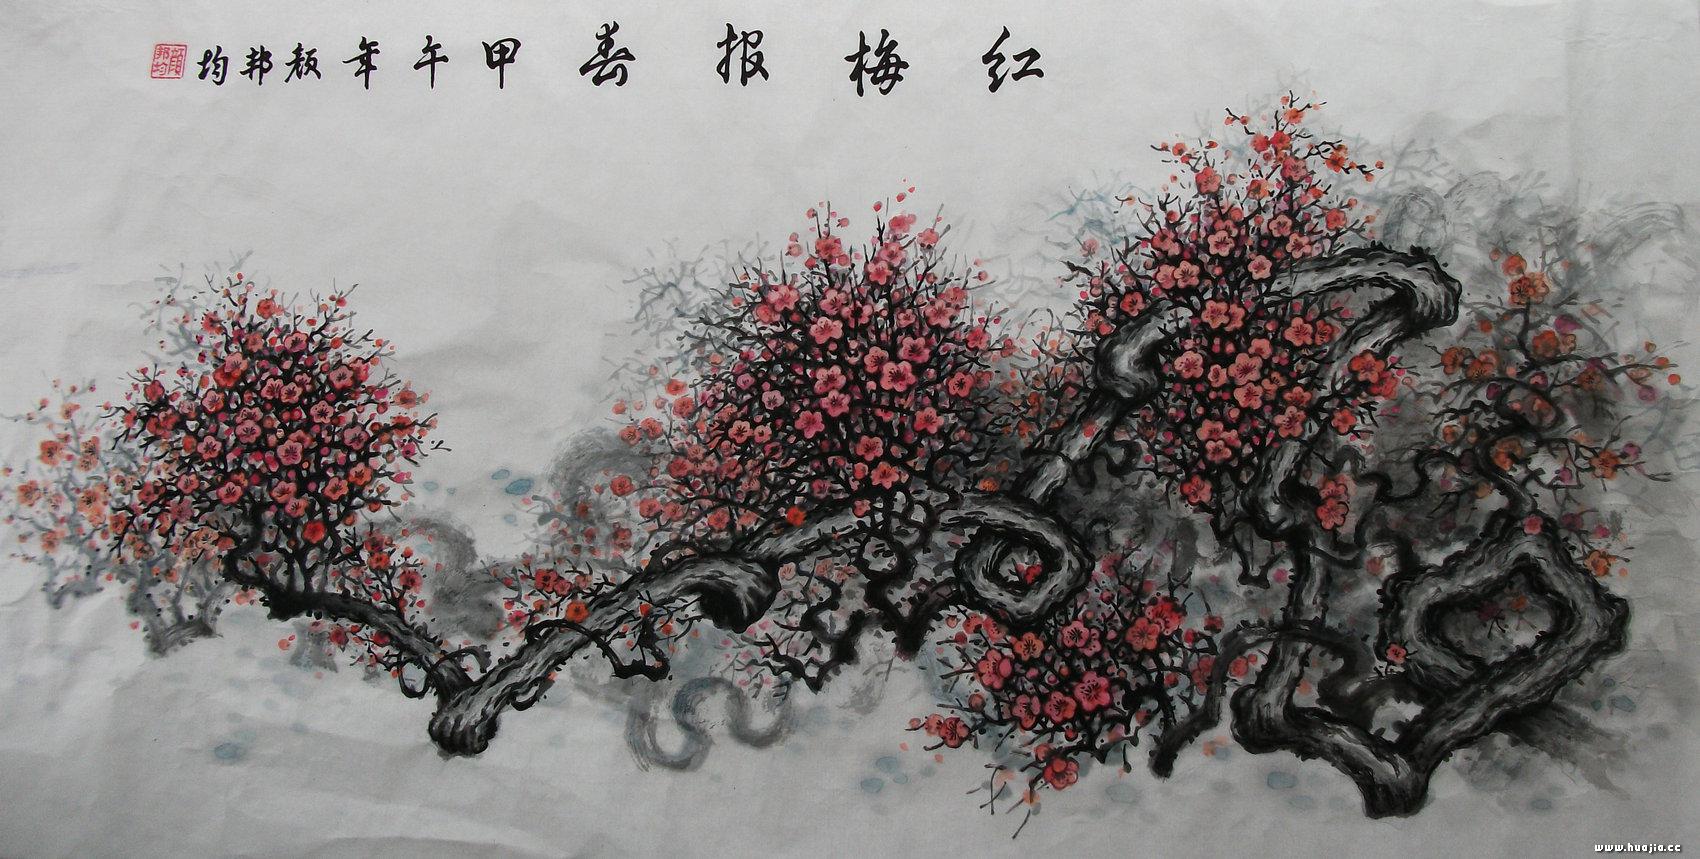 红梅报春 甲午年 颜邦均
颜邦均
www.huajia.cc